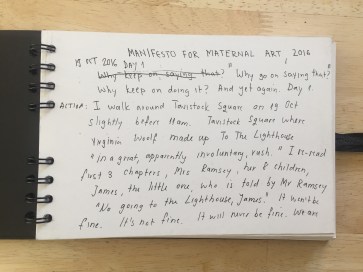 MANIFESTO FOR MATERNAL ART, 2016
18 OCT 2016 DAY 1
Why keep on saying that? "Why go on saying that?"
Why keep on doing it? And yet again. Day 1
ACTION: I walk around Tavistock Square on 19 Oct
slightly before 11am. Tavistock Square where
Virginia Woolf made up To The Lighthouse
"in a great, apparently involuntary, rush." I re-read
first 3 chapters, Mrs Ramsey, her 8 children,
James, the little one, who is told by Mr Ramsey
"No going to the Lighthouse, James." It won't be
fine. It's not fine. It will never be fine. We are